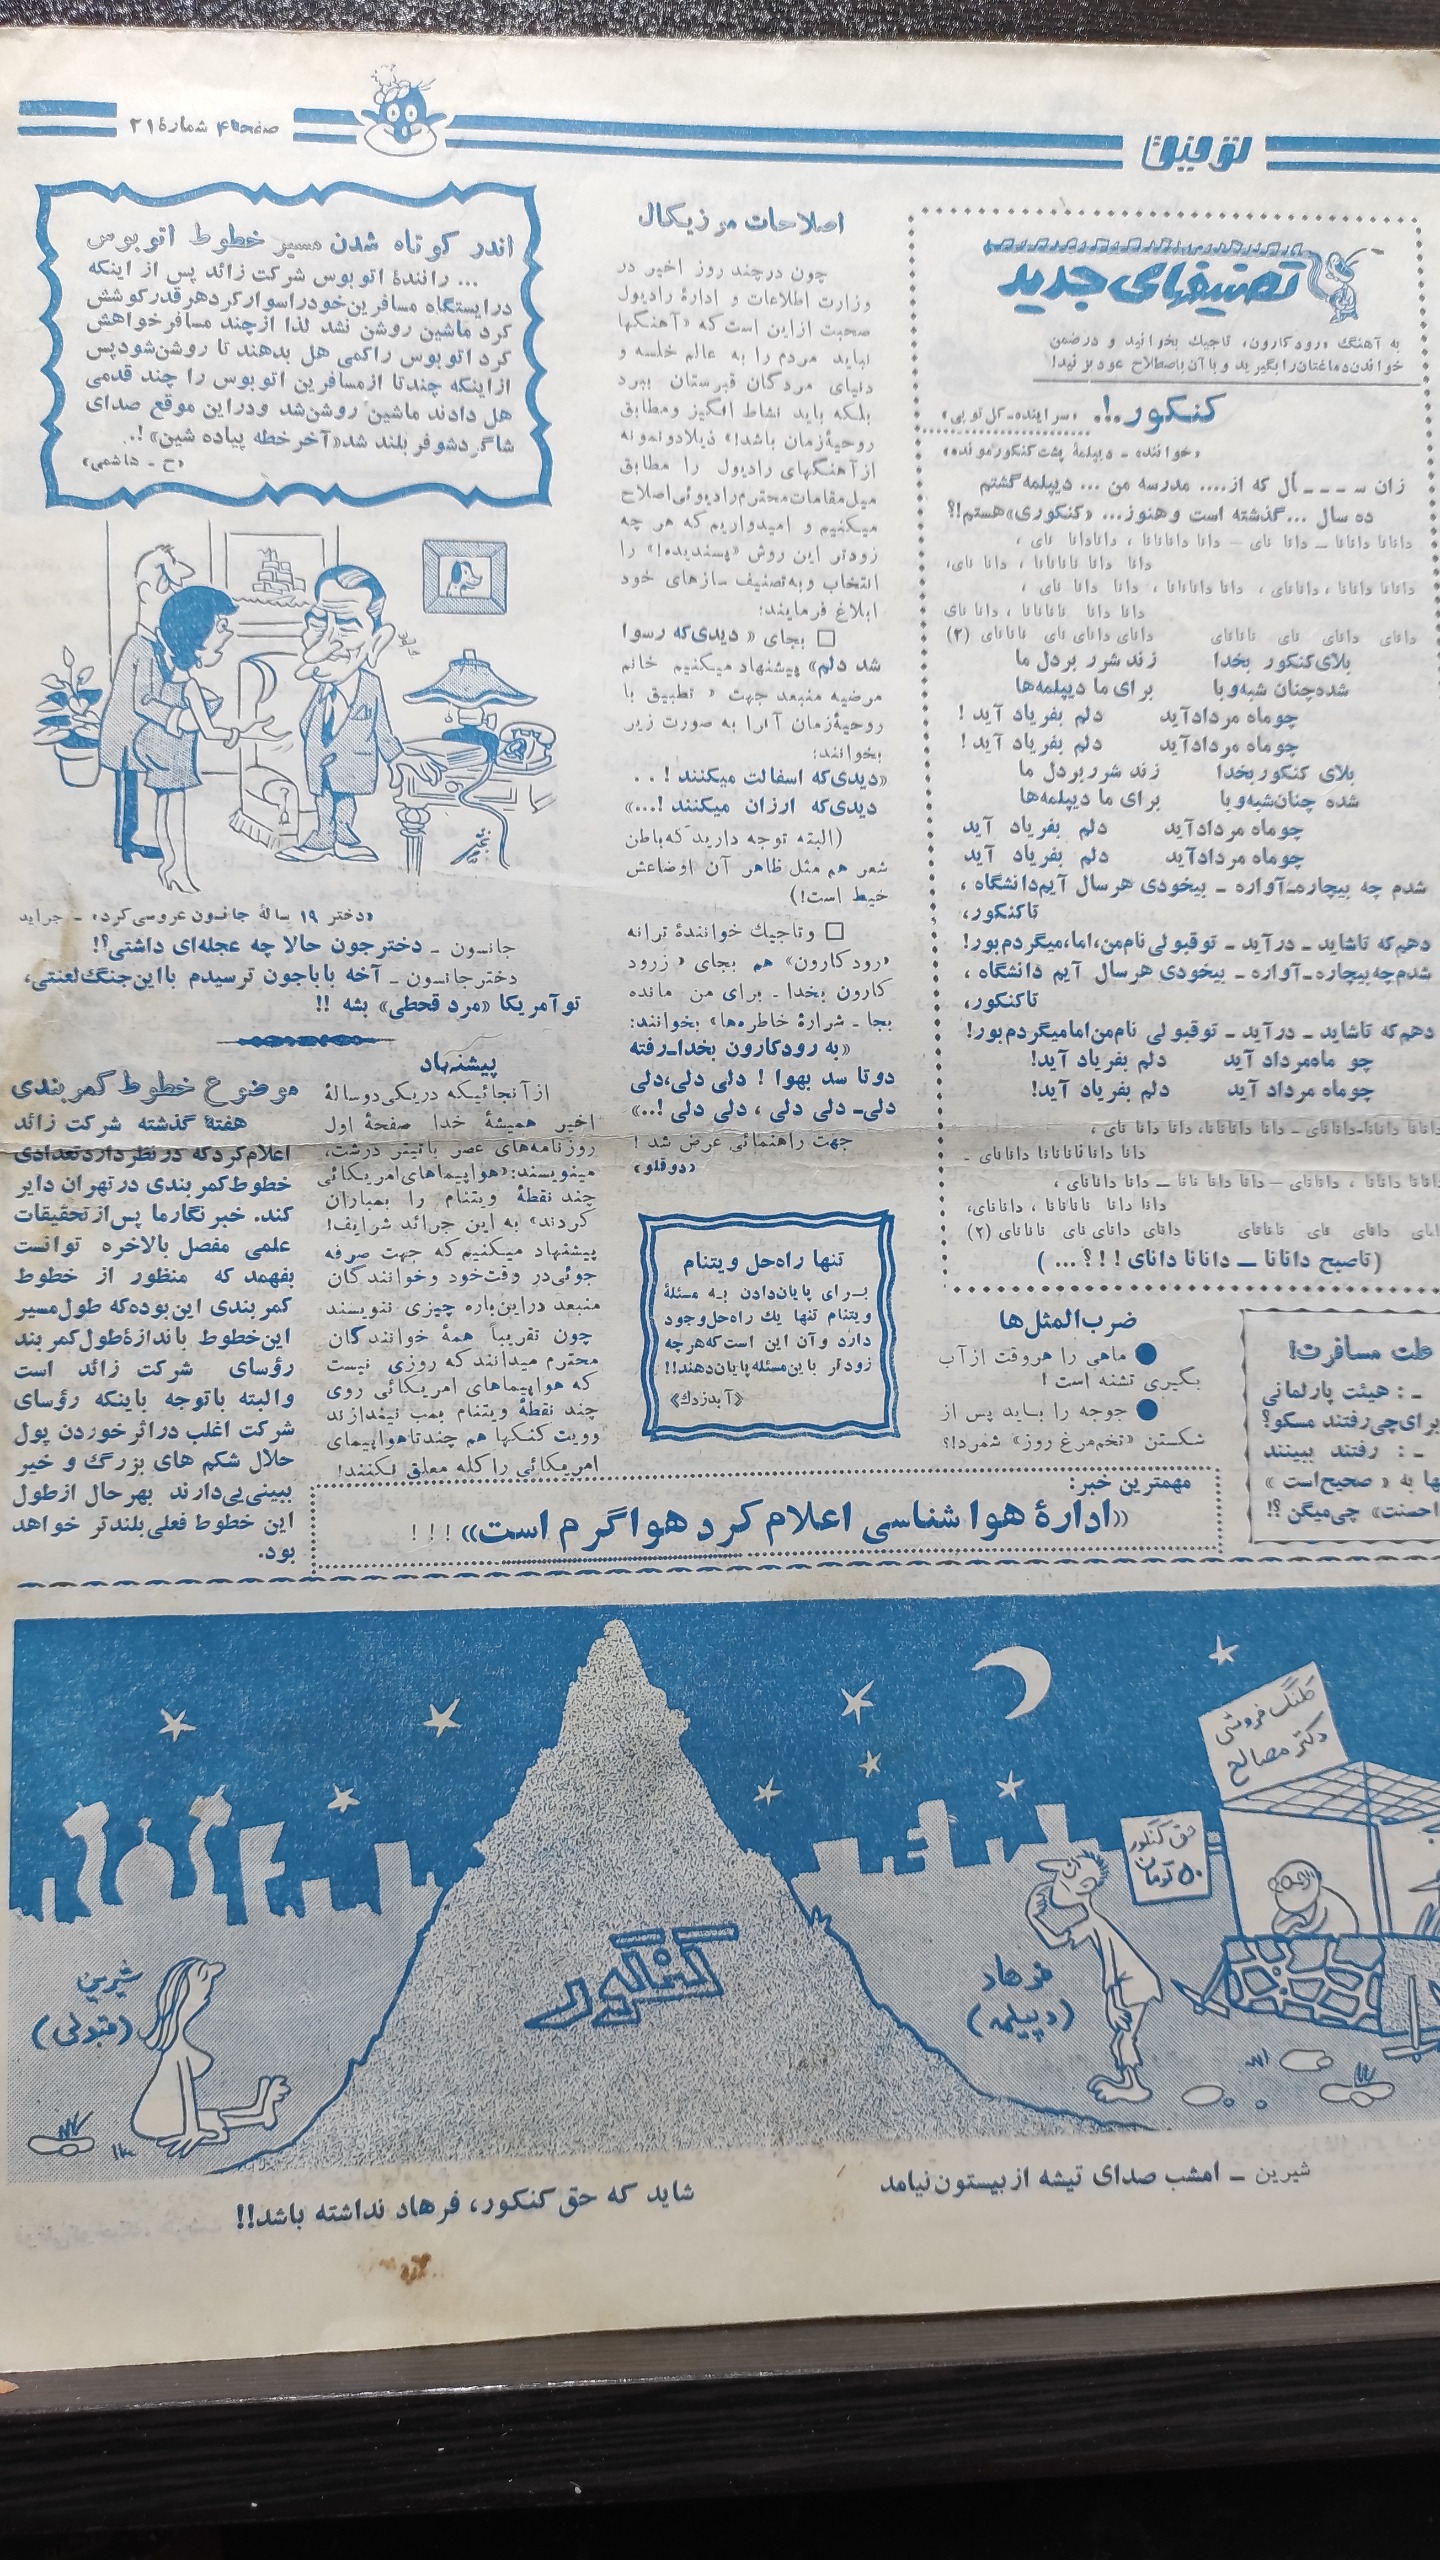 توفیق
صفحه ۴ شمارهٔ ۲۱
تصنیفهای جدید
به آهنگ «رودکارون» تاجیك بخوانید و درضمن
خواندن دماغتان را بگیرید و با آن باصطلاح عود بزنید!
کنکور..!. «سراینده-گل توبی»
«خواننده ـ دیپلمهٔ پشت کنکور مونده»
زان ســـأل که از.... مدرسه من ... دیپلمه گشتم
ده سال ...گذشته است و هنوز... «کنکوری» هستم!؟
دانانا دانانا ــ دانا نای ــ دانا داناناناا ، دانادانا نای ،
دانا دانا ناناناناا ، دانا نای،
دانانا دانانا ، داناناى ، دانا داناناناا ، دانا دانا نای ،
دانا دانا ناناناناا ، دانا نای
داناى داناى نای ناناناى داناى داناى ناى ناناناى (۲)
بلای کنکور بخدا زند شرر بر دل ما
شده چنان شبه وبا برای ما دیپلمه‌ها
چو ماه مرداد آید دلم بفریاد آید !
چو ماه مرداد آید دلم بفریاد آید !
بلای کنکور بخدا زند شرر بر دل ما
شده چنان شبه وبا برای ما دیپلمه‌ها
چو ماه مرداد آید دلم بفریاد آید
چو ماه مرداد آید دلم بفریاد آید
شدم چه بیچاره ـ آواره ـ بیخودی هر سال آیم دانشگاه ،
تا کنکور،
دهم که تاشاید ـ درآید ـ تو قبولی نام من، اما، میگردم بور!
شدم چه بیچاره ـ آواره ـ بیخودی هر سال آیم دانشگاه ،
تا کنکور،
دهم که تاشاید ـ درآید ـ تو قبولی نام من اما میگردم بور!
چو ماه مرداد آید دلم بفریاد آید!
چو ماه مرداد آید دلم بفریاد آید!
دانانا دانانا-داناناى ــ دانا داناناناا، دانا دانا نای ،
دانا دانا ناناناناا داناناى ـ
دانانا دانانا ، داناناى ــ دانا دانا نانا ــ دانا داناناى ،
دانا دانا ناناناناا ، داناناى،
داناى داناى نای ناناناى داناى داناى ناى ناناناى (۲)
(تاصبح دانانا ــ دانانا داناى ! ! ؟ ... )
ضرب‌المثل‌ها
● ماهی را هروقت از آب
بگیری تشنه است !
● جوجه را باید پس از
شکستن «تخم‌مرغ روز» شمرد!؟
علت مسافرت!
ـ : هیئت پارلمانی
برای چی رفتند مسکو؟
ـ : رفتند ببینند
به « صحیح است »
احسنت» چی میگن ؟!
اصلاحات موزیکال
چون درچند روز اخیر در
وزارت اطلاعات و ادارهٔ رادیول
صحبت ازاین است که «آهنگها
نباید مردم را به عالم خلسه و
دنیای مردگان قبرستان ببرد
بلکه باید نشاط انگیز و مطابق
روحیهٔ زمان باشد!» ذیلا دو نمونه
از آهنگهای رادیول را مطابق
میل مقامات محترم رادیوئی اصلاح
میکنیم و امیدواریم که هر چه
زودتر این روش «پسندیده!» را
انتخاب و به تصنیف سازهای خود
ابلاغ فرمایند:
□ بجای « دیدی که رسوا
شد دلم» پیشنهاد میکنیم خانم
مرضیه منبعد جهت « تطبیق با
روحیهٔ زمان آنرا به صورت زیر
بخوانند:
«دیدی که اسفالت میکنند ! . .
دیدی که ارزان میکنند !...»
(البته توجه دارید که باطن
شعر هم مثل ظاهر آن اوضاعش
خیط است!)
□ و تاجیك خوانندهٔ ترانه
«رودکارون» هم بجای « زرود
کارون بخدا ـ برای من مانده
بجا ـ شرارهٔ خاطره‌ها» بخوانند:
«به رودکارون بخدا ـ رفته
دوتا سد بهوا ! دلی دلی، دلی
دلی ـ دلی دلی ، دلی دلی !..»
جهت راهنمائی عرض شد !
«دوقلو»
تنها راه حل ویتنام
برای پایان‌دادن به مسئلهٔ
ویتنام تنها یك راه حل وجود
دارد و آن این است که هر چه
زودتر باین مسئله پایان دهند!!
«آبدزدك»
اندر کوتاه شدن مسیر خطوط اتوبوس
... رانندهٔ اتوبوس شرکت زائد پس از اینکه
در ایستگاه مسافرین خود را سوار کرد هر قدر کوشش
کرد ماشین روشن نشد لذا از چند مسافر خواهش
کرد اتوبوس را کمی هل بدهند تا روشن شود پس
از اینکه چند تا از مسافرین اتوبوس را چند قدمی
هل دادند ماشین روشن شد و در این موقع صدای
شاگرد شوفر بلند شد «آخر خطه پیاده شین» !..
«ح ـ هاشمی»
«دختر ۱۹ سالهٔ جانسون عروسی کرد» ـ جراید
جانسون ـ دخترجون حالا چه عجله‌ای داشتی؟!
دختر جانسون ـ آخه باباجون ترسیدم با این جنگ لعنتی،
تو آمریکا «مرد قحطی» بشه !!
پیشنهاد
از آنجائیکه در یکی دو سالهٔ
اخیر همیشهٔ خدا صفحهٔ اول
روزنامه‌های عصر با تیتر درشت،
مینویسند: «هواپیماهای امریکائی
چند نقطهٔ ویتنام را بمباران
کردند» به این جرائد شرایف!
پیشنهاد میکنیم که جهت صرفه
جوئی در وقت خود و خوانندگان
منبعد در این باره چیزی ننویسند
چون تقریباً همهٔ خوانندگان
محترم میدانند که روزی نیست
که هواپیماهای امریکائی روی
چند نقطهٔ ویتنام بمب نیندازند
و ویت کنگها هم چند تا هواپیمای
امریکائی را کله معلق نکنند!
موضوع خطوط کمربندی
هفتهٔ گذشته شرکت زائد
اعلام کرد که در نظر دارد تعدادی
خطوط کمربندی در تهران دایر
کند. خبرنگار ما پس از تحقیقات
علمی مفصل بالاخره توانست
بفهمد که منظور از خطوط
کمربندی این بوده که طول مسیر
این خطوط باندازهٔ طول کمربند
رؤسای شرکت زائد است
و البته با توجه باینکه رؤسای
شرکت اغلب در اثر خوردن پول
حلال شکم های بزرگ و خیر
ببینی یی دارند بهر حال از طول
این خطوط فعلی بلندتر خواهد
بود.
مهمترین خبر:
«ادارهٔ هواشناسی اعلام کرد هوا گرم است» ! ! !
کلنگ فروشی
دکتر مصالح
حق کنکور
۵۰ تومان
فرهاد
(دیپلمه)
کنکور
شیرین
(قبولی)
شیرین ـ امشب صدای تیشه از بیستون نیامد
شاید که حق کنکور، فرهاد نداشته باشد!!